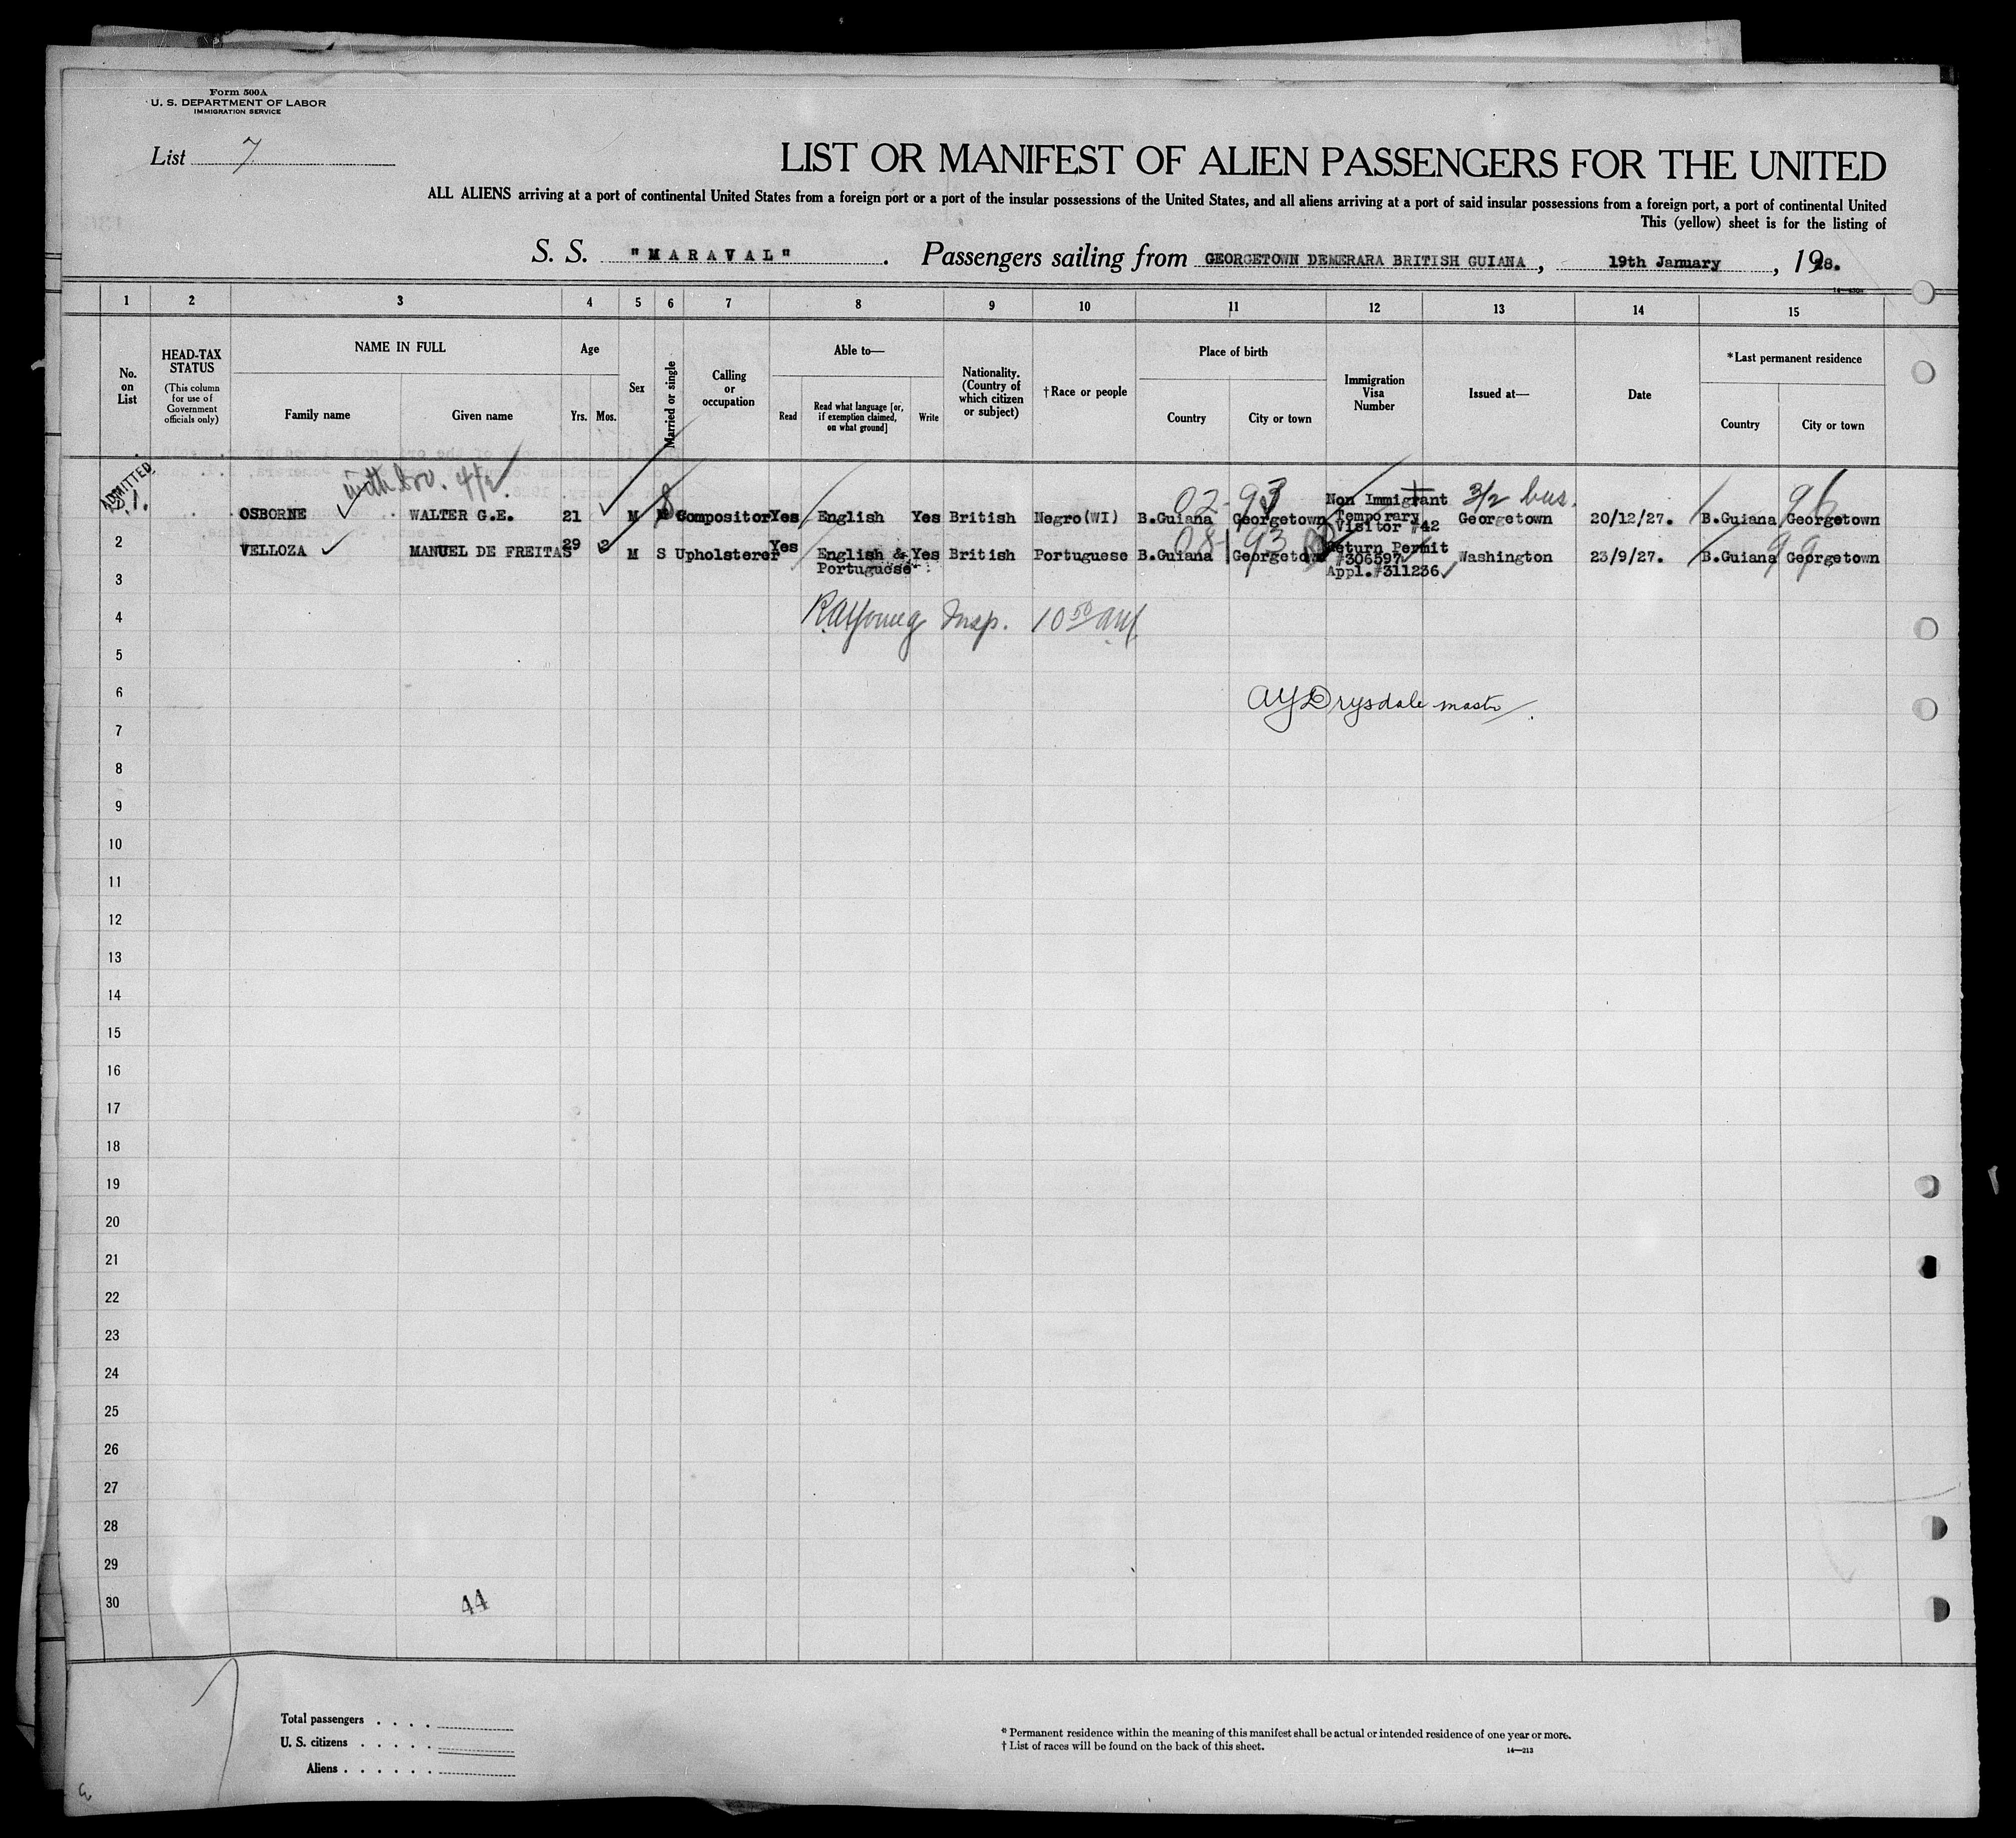 Form 500A
U. S. DEPARTMENT OF LABOR
IMMIGRATION SERVICE
List 7
LIST OR MANIFEST OF ALIEN PASSENGERS FOR THE UNITED
ALL ALIENS arriving at a port of continental United States from a foreign port or a port of the insular possessions of the United States, and all aliens arriving at a port of said insular possessions from a foreign port, a port of continental United
This (yellow) sheet is for the listing of
S. S. "MARAVAL". Passengers sailing from GEORGETOWN DEMERARA BRITISH GUIANA, 19th January, 1928.
1 2 3 4 5 6 7 8 9 10 11 12 13 14 15
No. on List
HEAD-TAX STATUS
(This column for use of Government officials only)
NAME IN FULL
Family name Given name
Age
Yrs. Mos.
Sex
Married or single
Calling or occupation
Able to—
Read
Read what language [or, if exemption claimed, on what ground]
Write
Nationality. (Country of which citizen or subject)
†Race or people
Place of birth
Country City or town
Immigration Visa Number
Issued at—
Date
*Last permanent residence
Country City or town
ADMITTED
02-93 3/2 bus.
OSBORNE WALTER G.E. 21 M S Compositor Yes English Yes British Negro(WI) B.Guiana Georgetown Non Immigrant Temporary Visitor #42 Georgetown 20/12/27. B.Guiana Georgetown
08 93 99
2 VELLOZA MANUEL DE FREITAS 29 2 M S Upholsterer Yes English & Portuguese Yes British Portuguese B.Guiana Georgetown Return Permit #306597 Appl.#311236 Washington 23/9/27. B.Guiana Georgetown
3
4 Insp. 10 50 am
5
6 Drysdale master.
7
8
9
10
11
12
13
14
15
16
17
18
19
20
21
22
23
24
25
26
27
28
29
30
44
Total passengers . . . .
U. S. citizens . . . . .
Aliens . . . . . .
* Permanent residence within the meaning of this manifest shall be actual or intended residence of one year or more.
† List of races will be found on the back of this sheet.
14—213